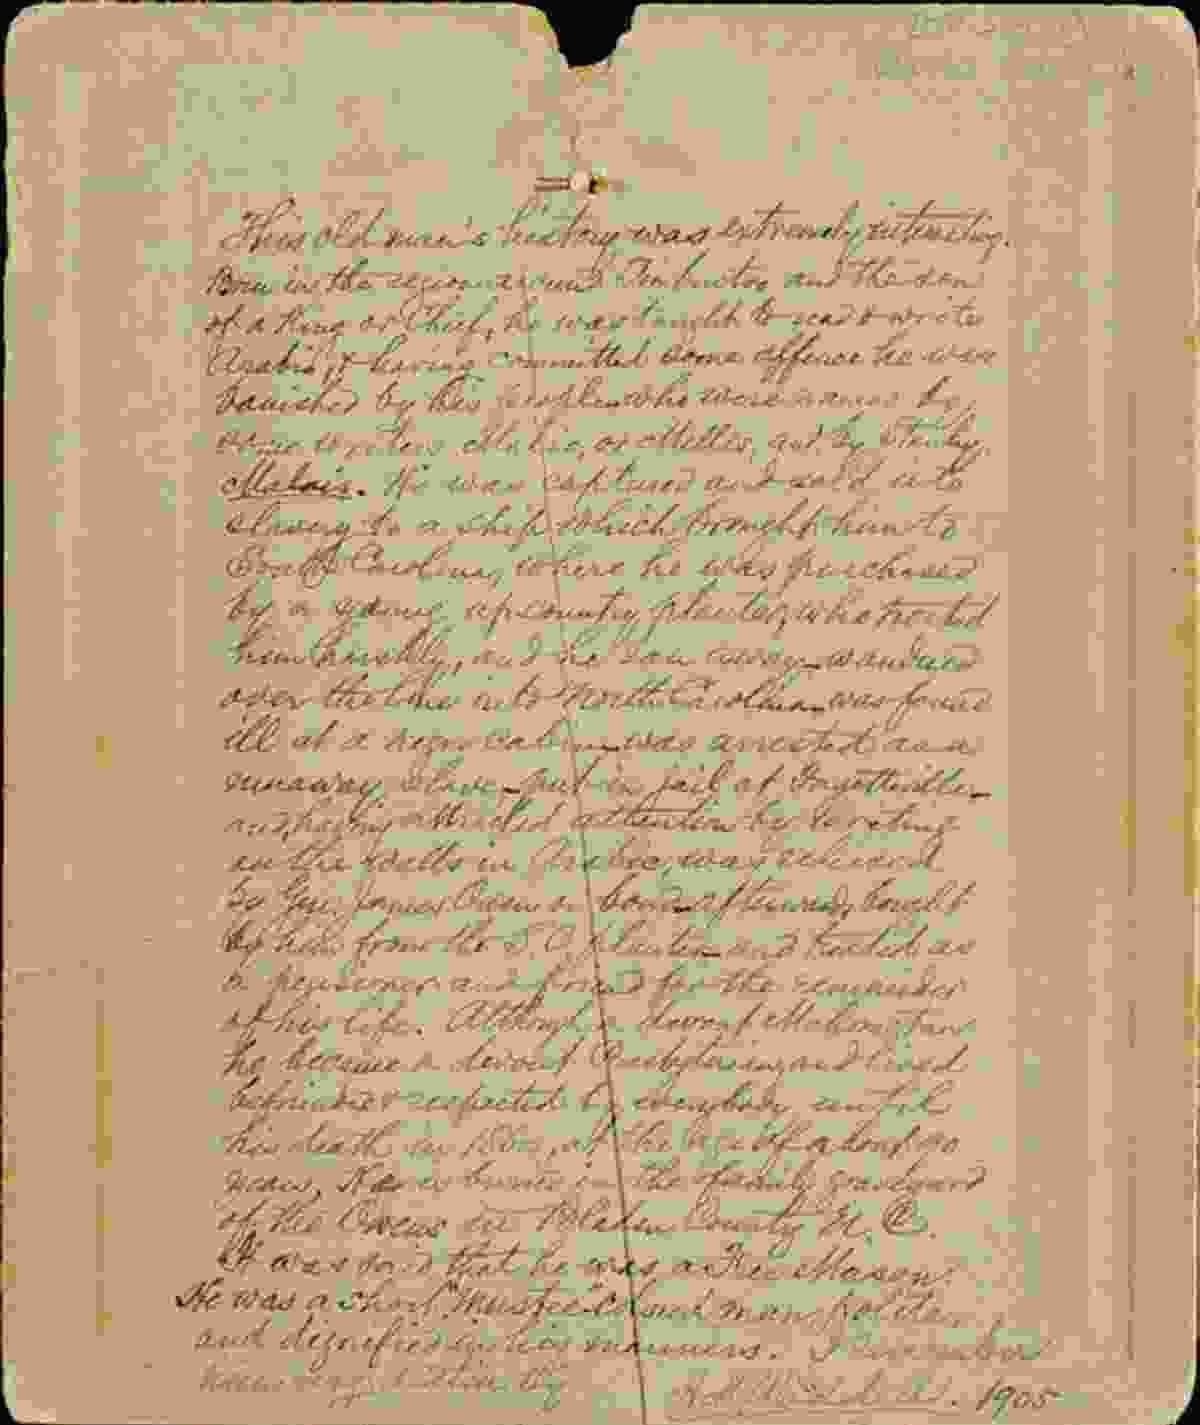 This old man's history was extremely interesting.
Born in the region around Timbuctoo and the son
of a King or Chief, he was taught to read & write
Arabic, & having committed some offence he was
banished by his people who were named by
some writers or Melles, and by Stanley
Malais. He was captured and sold into
slavery to a ship which brought him to
South Carolina, where he was purchased
by a young up country planter, who treated
him harshly, and he ran away - wandered
over the line into North Carolina - was found
ill at a negro cabin - was arrested as a
runaway slave - put in jail at Fayetteville -
and, having attracted attention by writing
on the walls in Arabic, was released
to Gen. James Owen on bond - afterwards bought
by him from the S. C. planter - and treated as
a pensioner and friend for the remainder
of his life. Although a devout Mahometan
he became a devout Presbyterian, and lived
befriended & respected by everybody until
his death in at the age of about 90
years. He is buried in the family graveyard
of the Owens in Bladen County N. C.
It was said that he was a Free Mason.
He was a short "Mustee" colored man, polite
and dignified in his manners. I remember
him very
1905